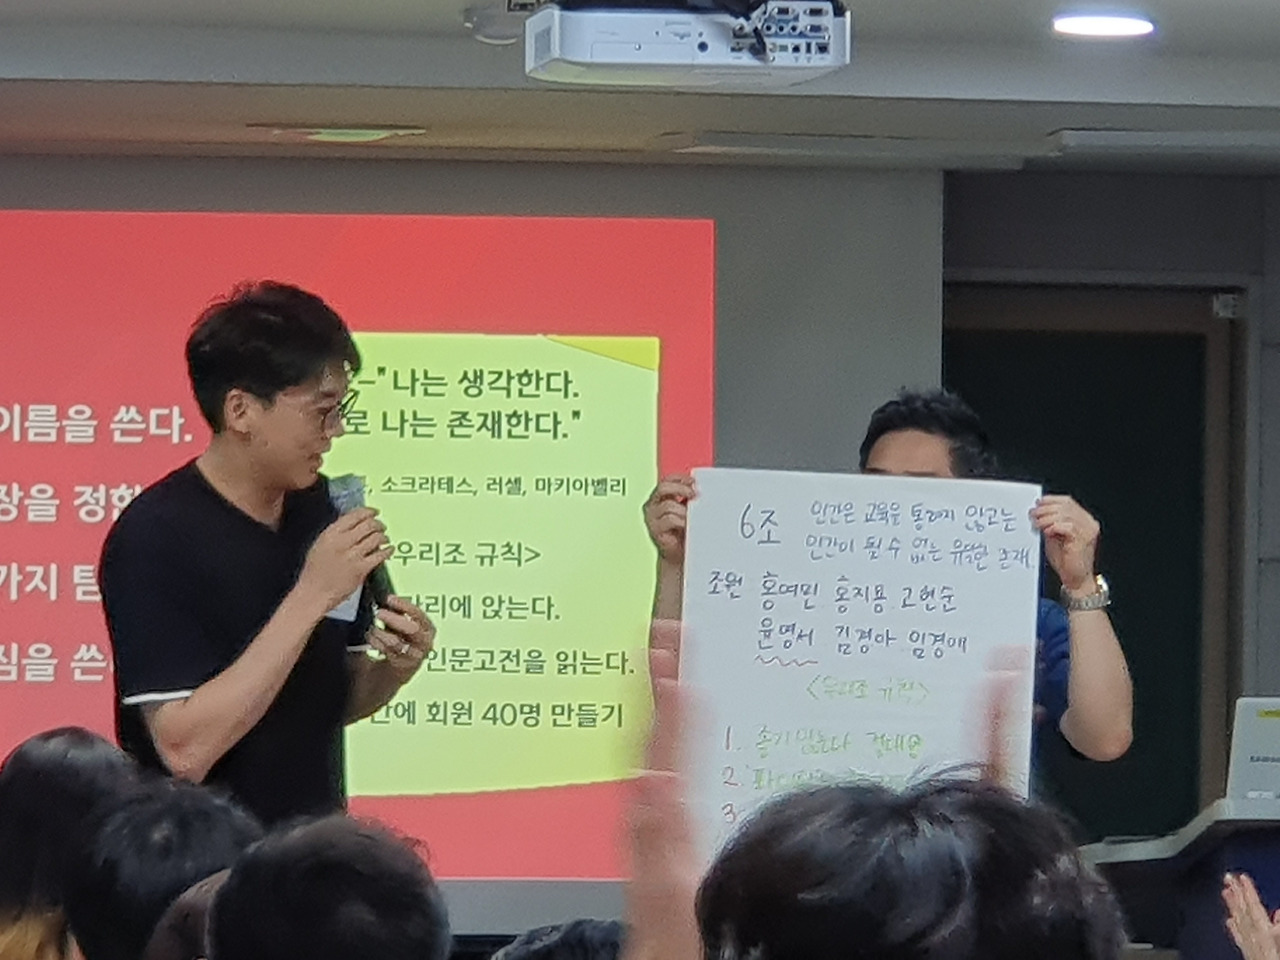 이름을 쓴다.
장을 정한
가지 팀
심을 쓴
"나는 생각한다.
로 나는 존재한다."
소크라테스, 러셀, 마키아벨리
우리조 규칙>
자리에 앉는다.
인문고전을 읽는다.
안에 회원 40명 만들기
6조
인간은 교육을 통하지 않고는
인간이 될 수 없는 유일한 존재.
조원 홍여민 홍지용 고현순
윤영서 김경아 임경애
<우리조 규칙>
1.
2.
3.